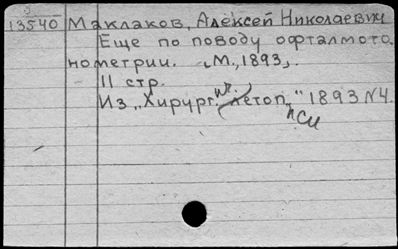 13540 Маклаков, Алексей Николаевич
Еще по поводу офталмото
нометрии. М., 1893,.
11 стр.
Из „Хирург. летоп." 1893 N4.